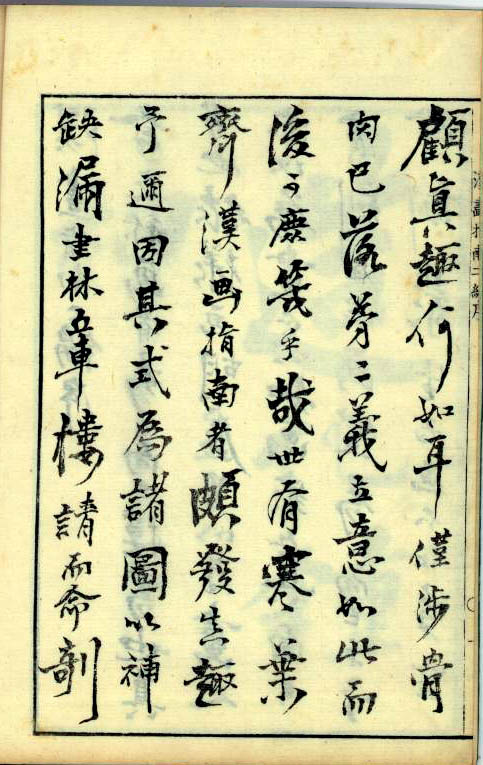 顧真趣何如耳僅涉骨
肉已落第二義立意如此而
後可庶幾乎哉世有寒葉
齋漢画指南者頗發真趣
予邇因其式為諸圖以補
缺漏書林五車樓請而命剞